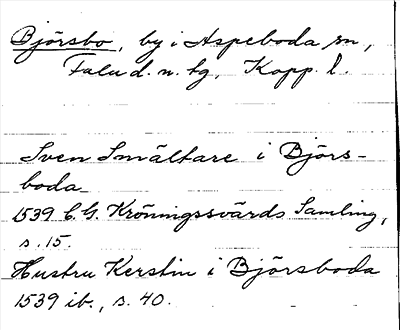 Björsbo, by i Aspeboda sn,
Falu d. n. tg, Kopp. l.
Sven Smältare i Björs-
boda
1539 C.G. Kröningssvärds Samling,
s. 15.
Hustru Kerstin i Björsboda
1539 ib., s. 40.